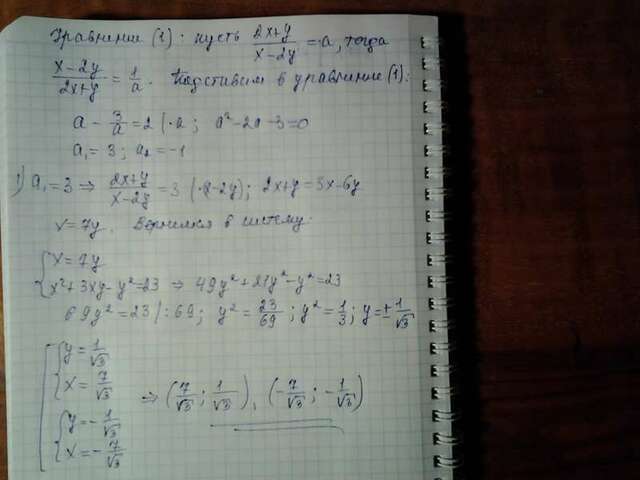 Уравнение (1): пусть (2x+y)/(x-2y) = a, тогда
(x-2y)/(2x+y) = 1/a. Подставим в уравнение (1):
a - 3/a = 2 |·a; a²-2a-3=0
a₁ = 3; a₂ = -1
1) a₁=3 ⇒ (2x+y)/(x-2y) = 3 |·(x-2y); 2x+y=3x-6y
x=7y. Вернемся в систему:
{ x=7y
x²+3xy-y²=23 ⇒ 49y²+21y²-y²=23
69y²=23 |:69; y² = 23/69; y² = 1/3; y = ± 1/√3
[ { y = 1/√3
x = 7/√3 ⇒ (7/√3; 1/√3), (-7/√3; -1/√3)
{ y = - 1/√3
x = - 7/√3